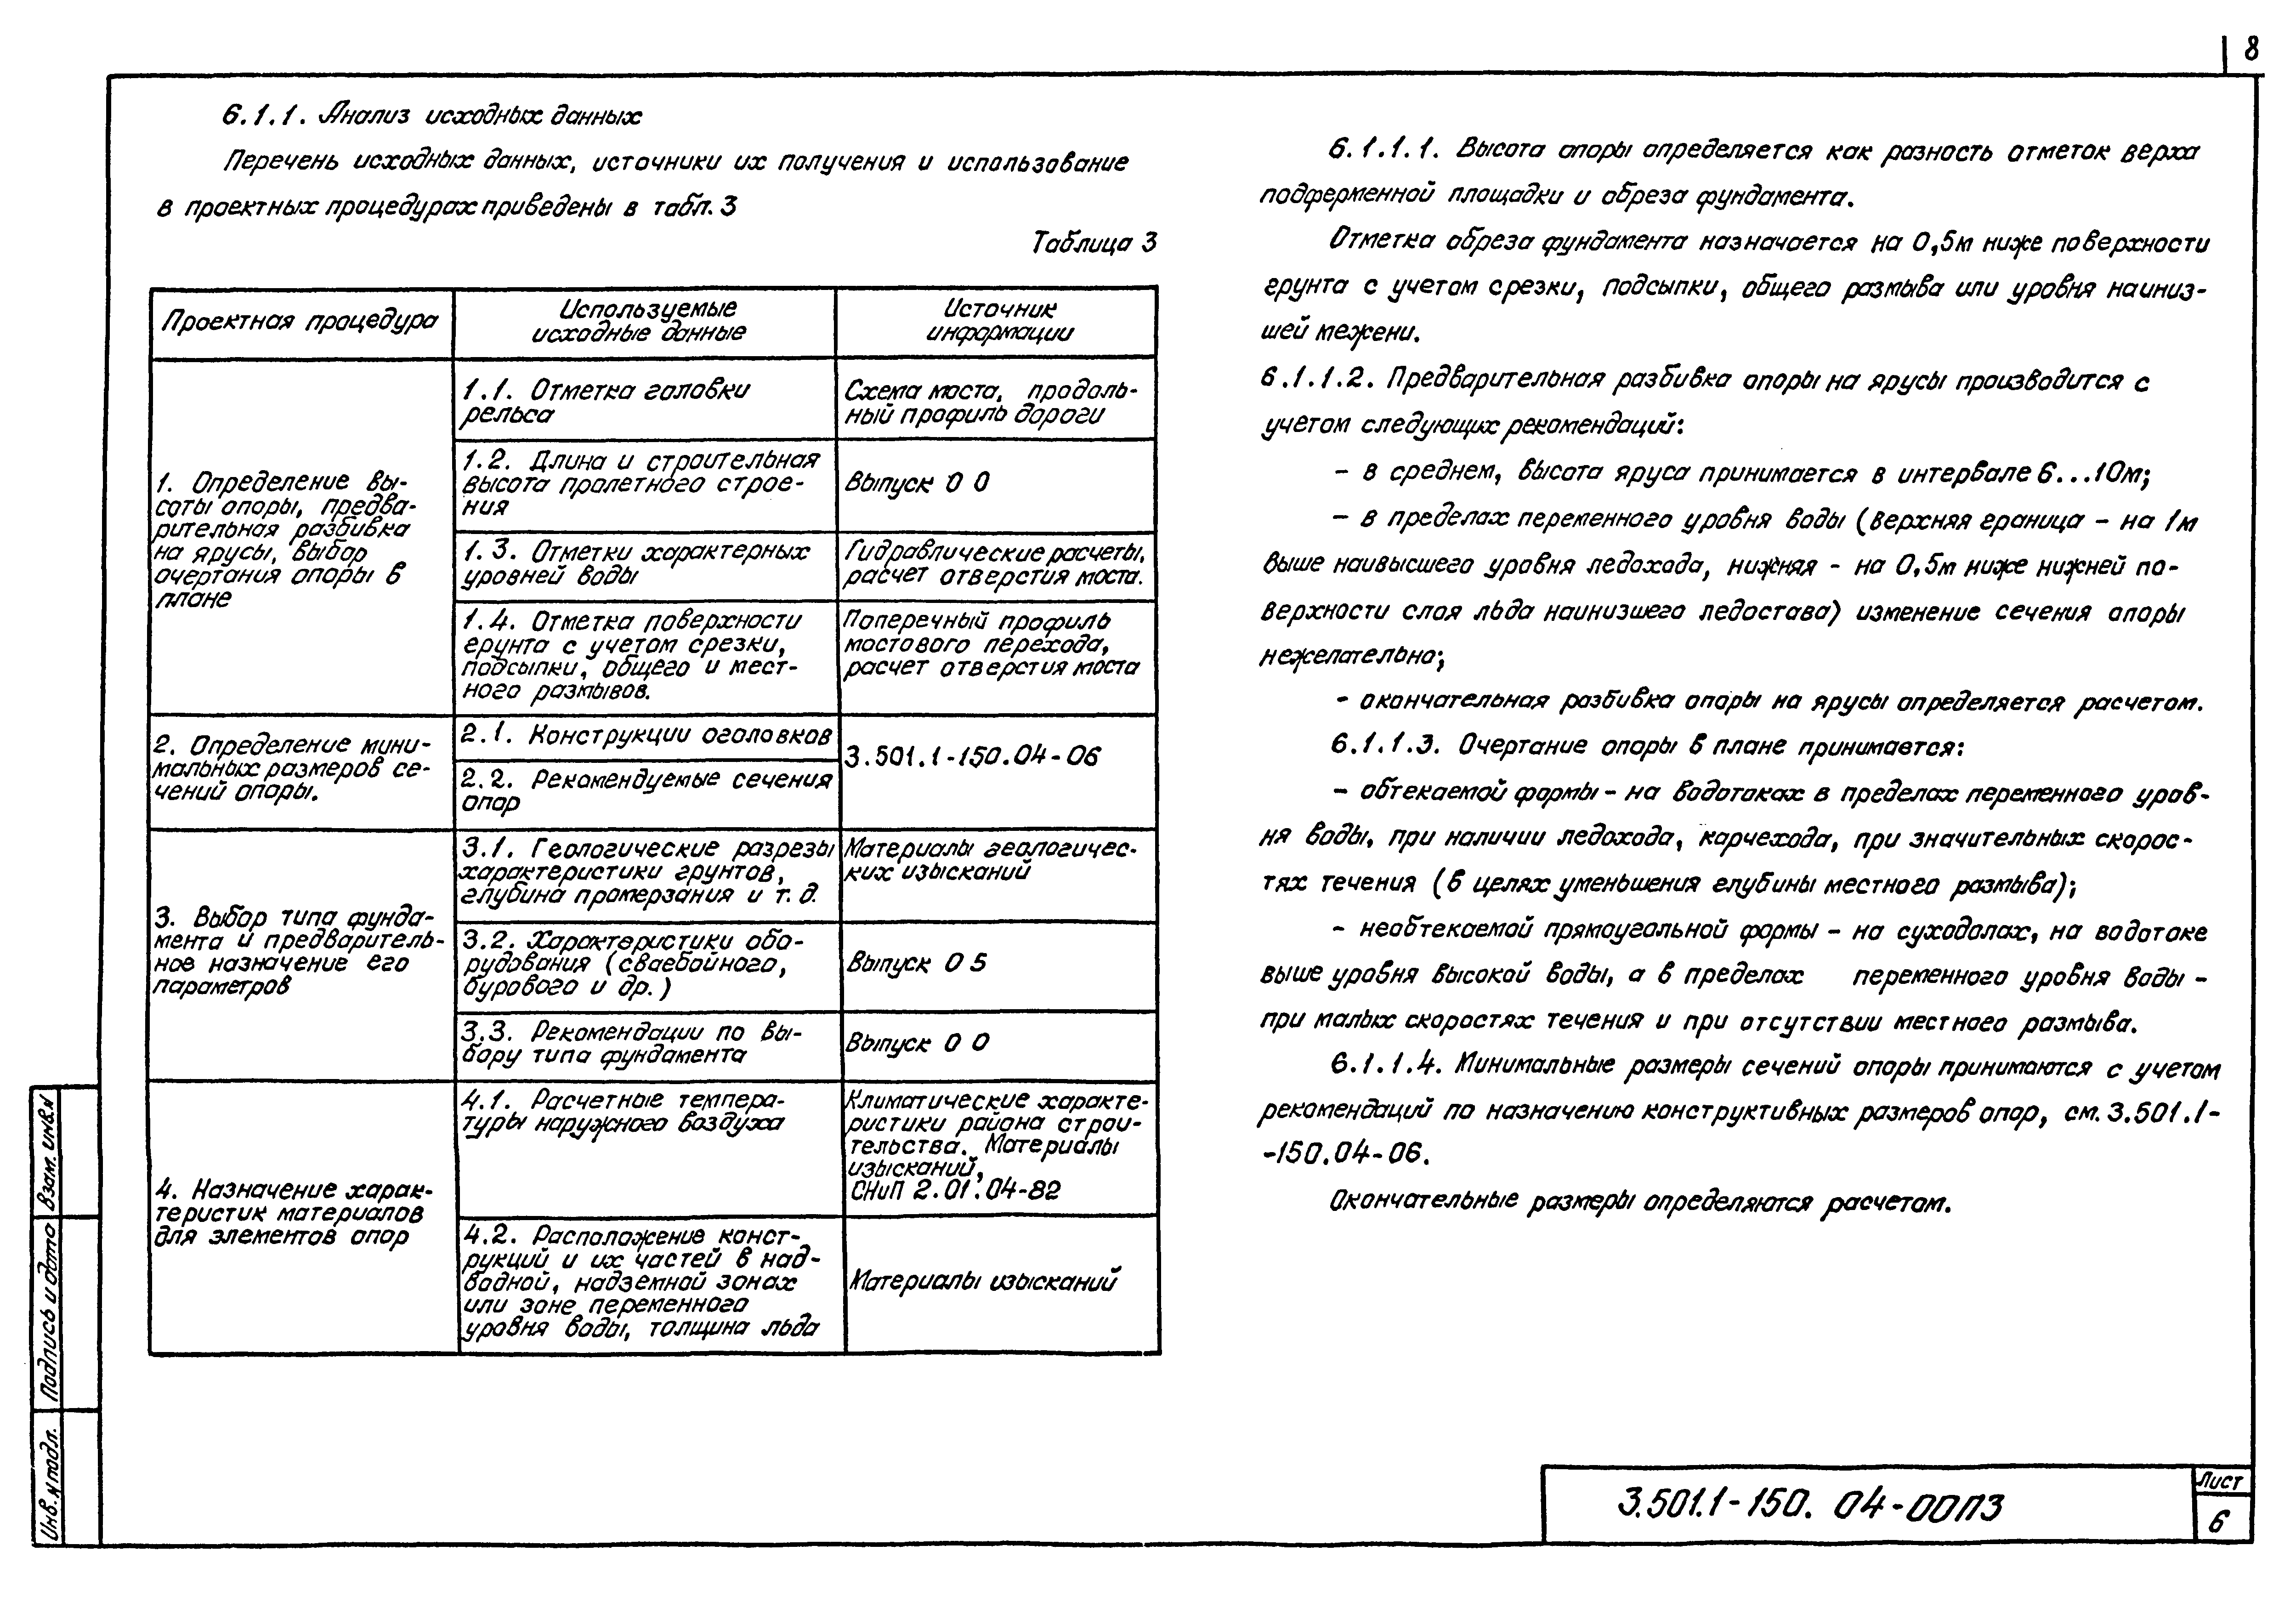 8
6.1.1. Анализ исходных данных
Перечень исходных данных, источники их получения и использование
в проектных процедурах приведены в табл. 3
Таблица 3
Проектная процедура
Используемые
исходные данные
Источник
информации
1. Определение вы-
соты опоры, предва-
рительная разбивка
на ярусы, выбор
очертания опоры в
плане
1.1. Отметка головки
рельса
Схема моста, продоль-
ный профиль дороги
1.2. Длина и строительная
высота пролетного строе-
ния
Выпуск 0 0
1.3. Отметки характерных
уровней воды
Гидравлические расчеты,
расчет отверстия моста.
1.4. Отметка поверхности
грунта с учетом срезки,
подсыпки, общего и мест-
ного размывов.
Поперечный профиль
мостового перехода,
расчет отверстия моста
2. Определение мини-
мальных размеров се-
чений опоры.
2.1. Конструкции оголовков
3.501.1-150.04-06
2.2. Рекомендуемые сечения
опор
3. Выбор типа фунда-
мента и предваритель-
ное назначение его
параметров
3.1. Геологические разрезы
характеристики грунтов,
глубина промерзания и т.д.
Материалы геологичес-
ких изысканий
3.2. Характеристики обо-
рудования (сваебойного,
бурового и др.)
Выпуск 0 5
3.3. Рекомендации по вы-
бору типа фундамента
Выпуск 0 0
4. Назначение харак-
теристик материалов
для элементов опор
4.1. Расчетные темпера-
туры наружного воздуха
Климатические характе-
ристики района строи-
тельства. Материалы
изысканий,
СНиП 2.01.04-82
4.2. Расположение конст-
рукций и их частей в над-
водной, надземной зонах
или зоне переменного
уровня воды, толщина льда
Материалы изысканий
6.1.1.1. Высота опоры определяется как разность отметок верха
подферменной площадки и обреза фундамента.
Отметка обреза фундамента назначается на 0,5м ниже поверхности
грунта с учетом срезки, подсыпки, общего размыва или уровня наиниз-
шей межени.
6.1.1.2. Предварительная разбивка опоры на ярусы производится с
учетом следующих рекомендаций:
- в среднем, высота яруса принимается в интервале 6...10м;
- в пределах переменного уровня воды (верхняя граница - на 1м
выше наивысшего уровня ледохода, нижняя - на 0,5м ниже нижней по-
верхности слоя льда наинизшего ледостава) изменение сечения опоры
нежелательно;
- окончательная разбивка опоры на ярусы определяется расчетом.
6.1.1.3. Очертание опоры в плане принимается:
- обтекаемой формы - на водотоках в пределах переменного уров-
ня воды, при наличии ледохода, карчехода, при значительных скорос-
тях течения (в целях уменьшения глубины местного размыва);
- необтекаемой прямоугольной формы - на суходолах, на водотоке
выше уровня высокой воды, а в пределах переменного уровня воды -
при малых скоростях течения и при отсутствии местного размыва.
6.1.1.4. Минимальные размеры сечений опоры принимаются с учетом
рекомендаций по назначению конструктивных размеров опор, см. 3.501.1-
-150.04-06.
Окончательные размеры определяются расчетом.
Инв. N подл.
Подпись и дата
Взам. инв.N
3.501.1-150. 04-00ПЗ
Лист
6